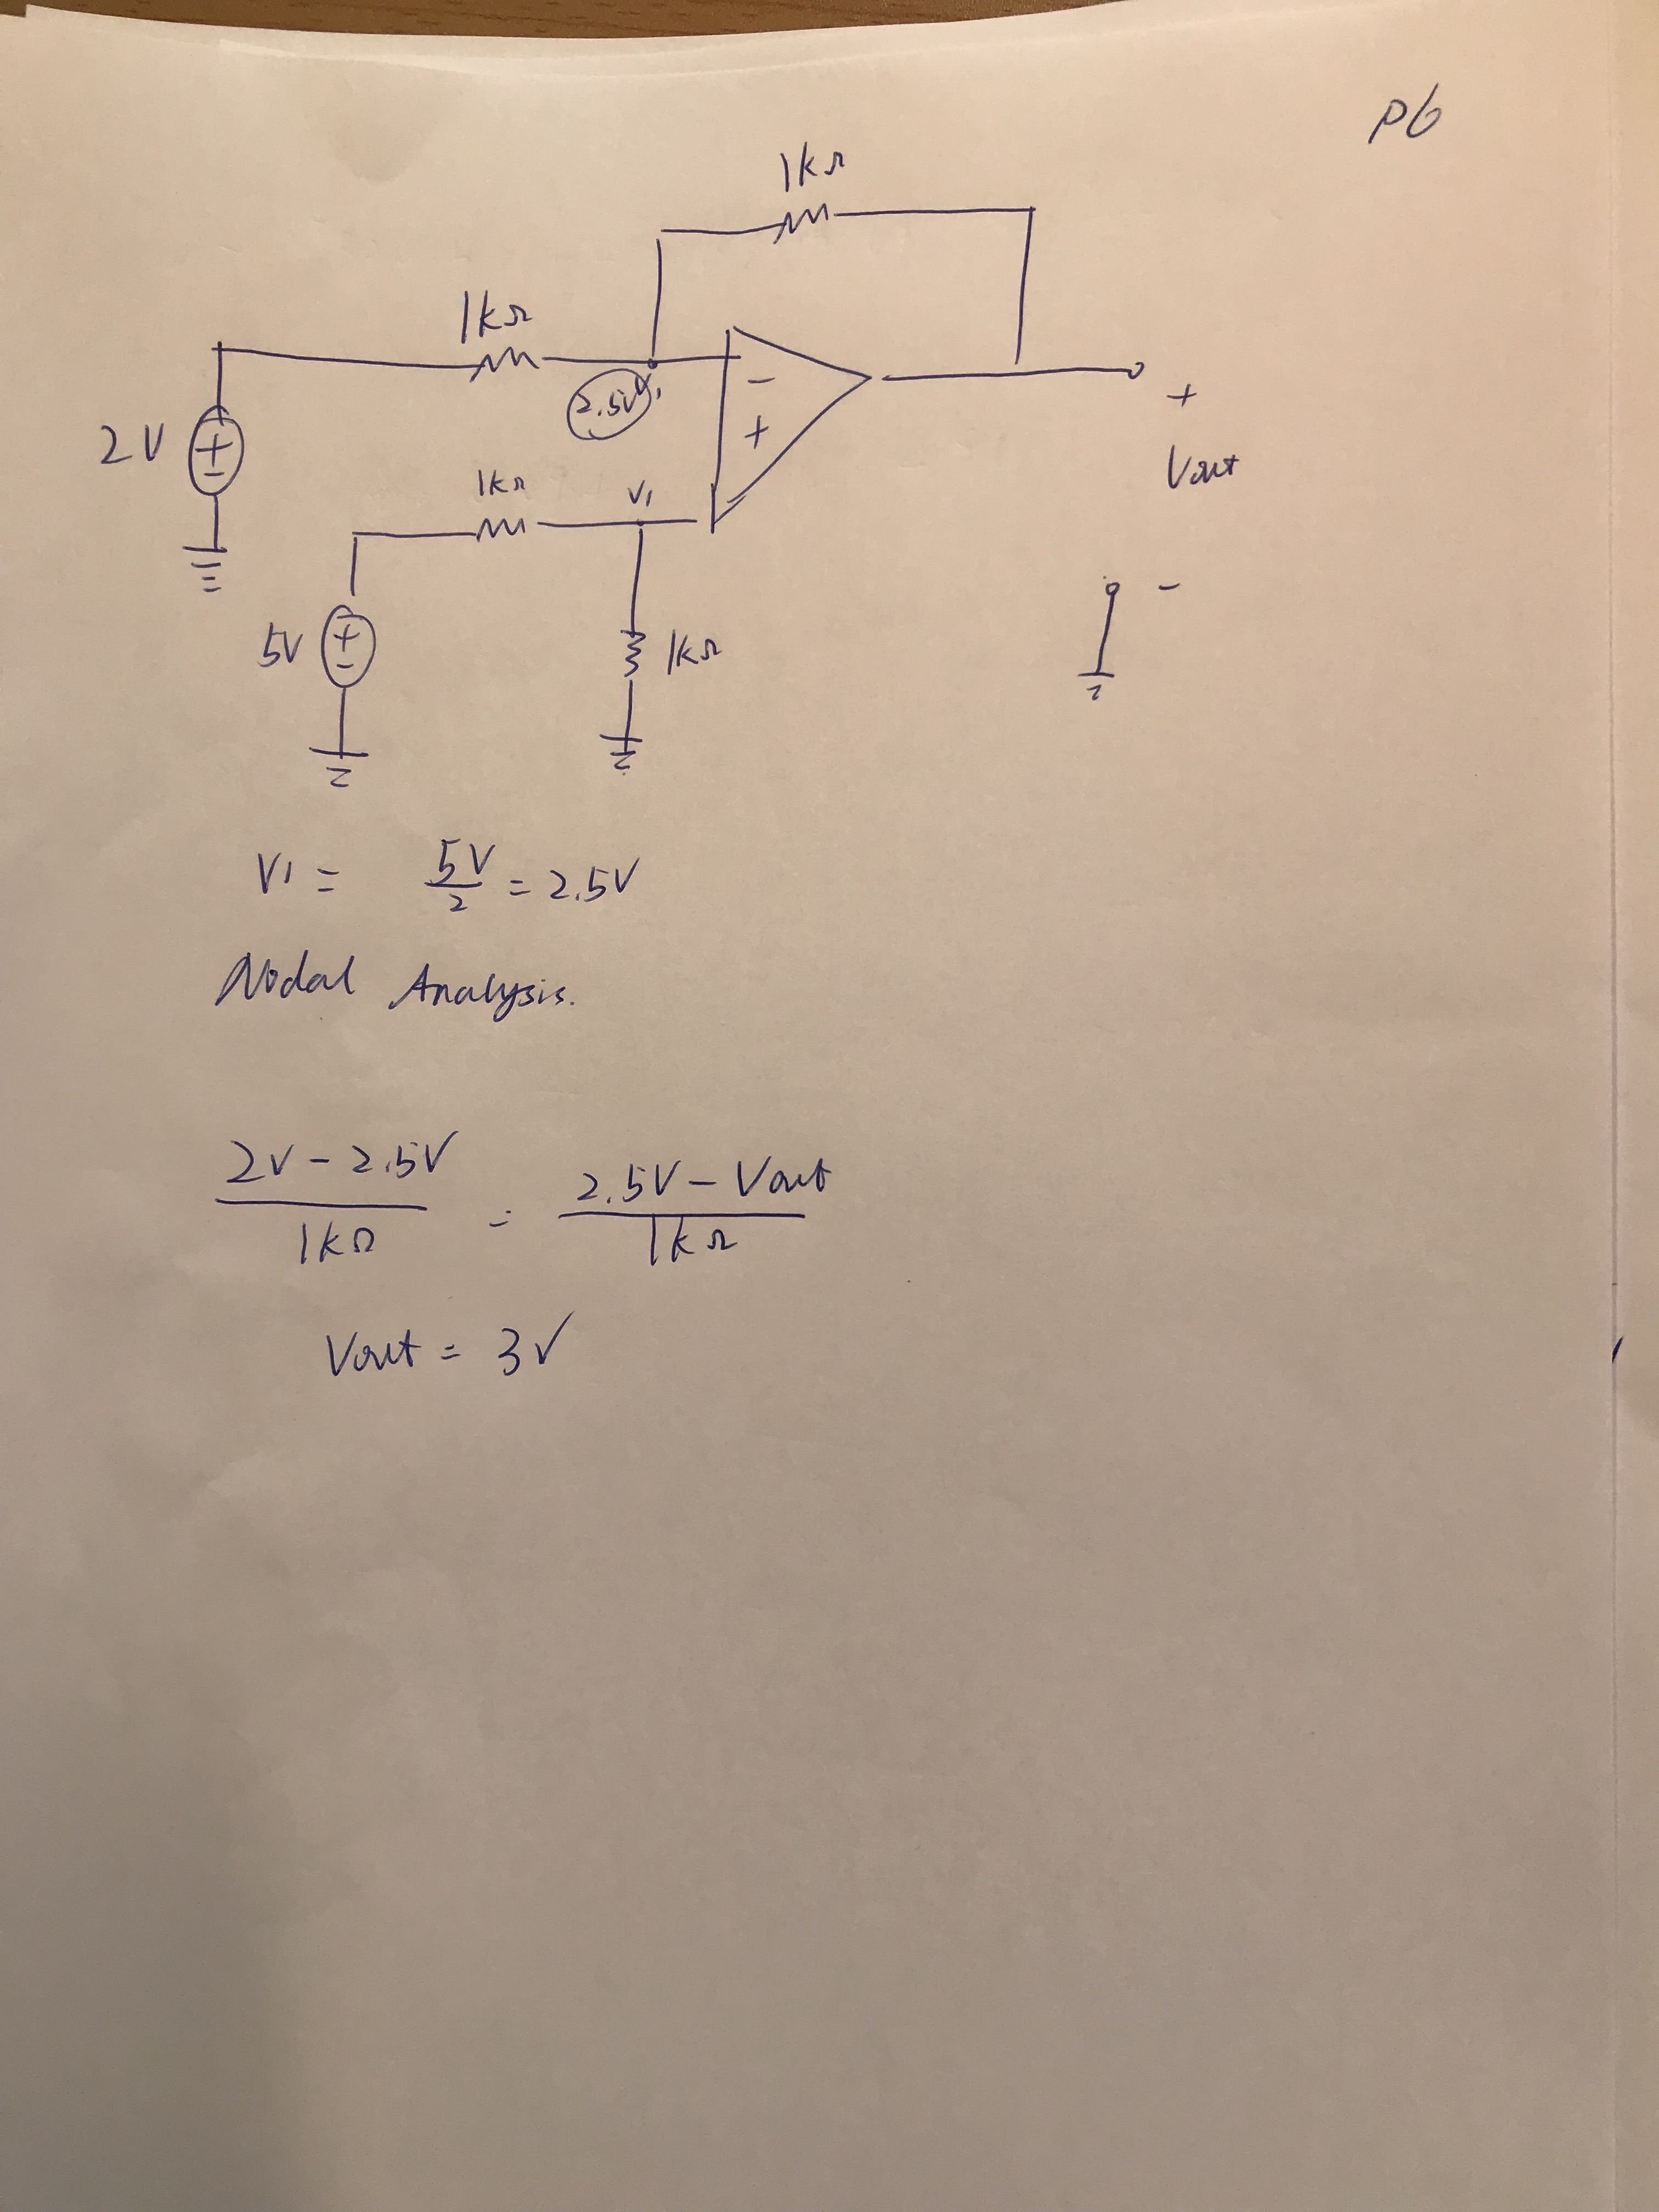 P6
1kΩ
1kΩ
2.5V V1
2V
+
-
-
+
+
Vout
-
1kΩ
V1
5V
+
-
1kΩ
V1 = 5V/2 = 2.5V
Nodal Analysis.
2V - 2.5V / 1kΩ = 2.5V - Vout / 1kΩ
Vout = 3V